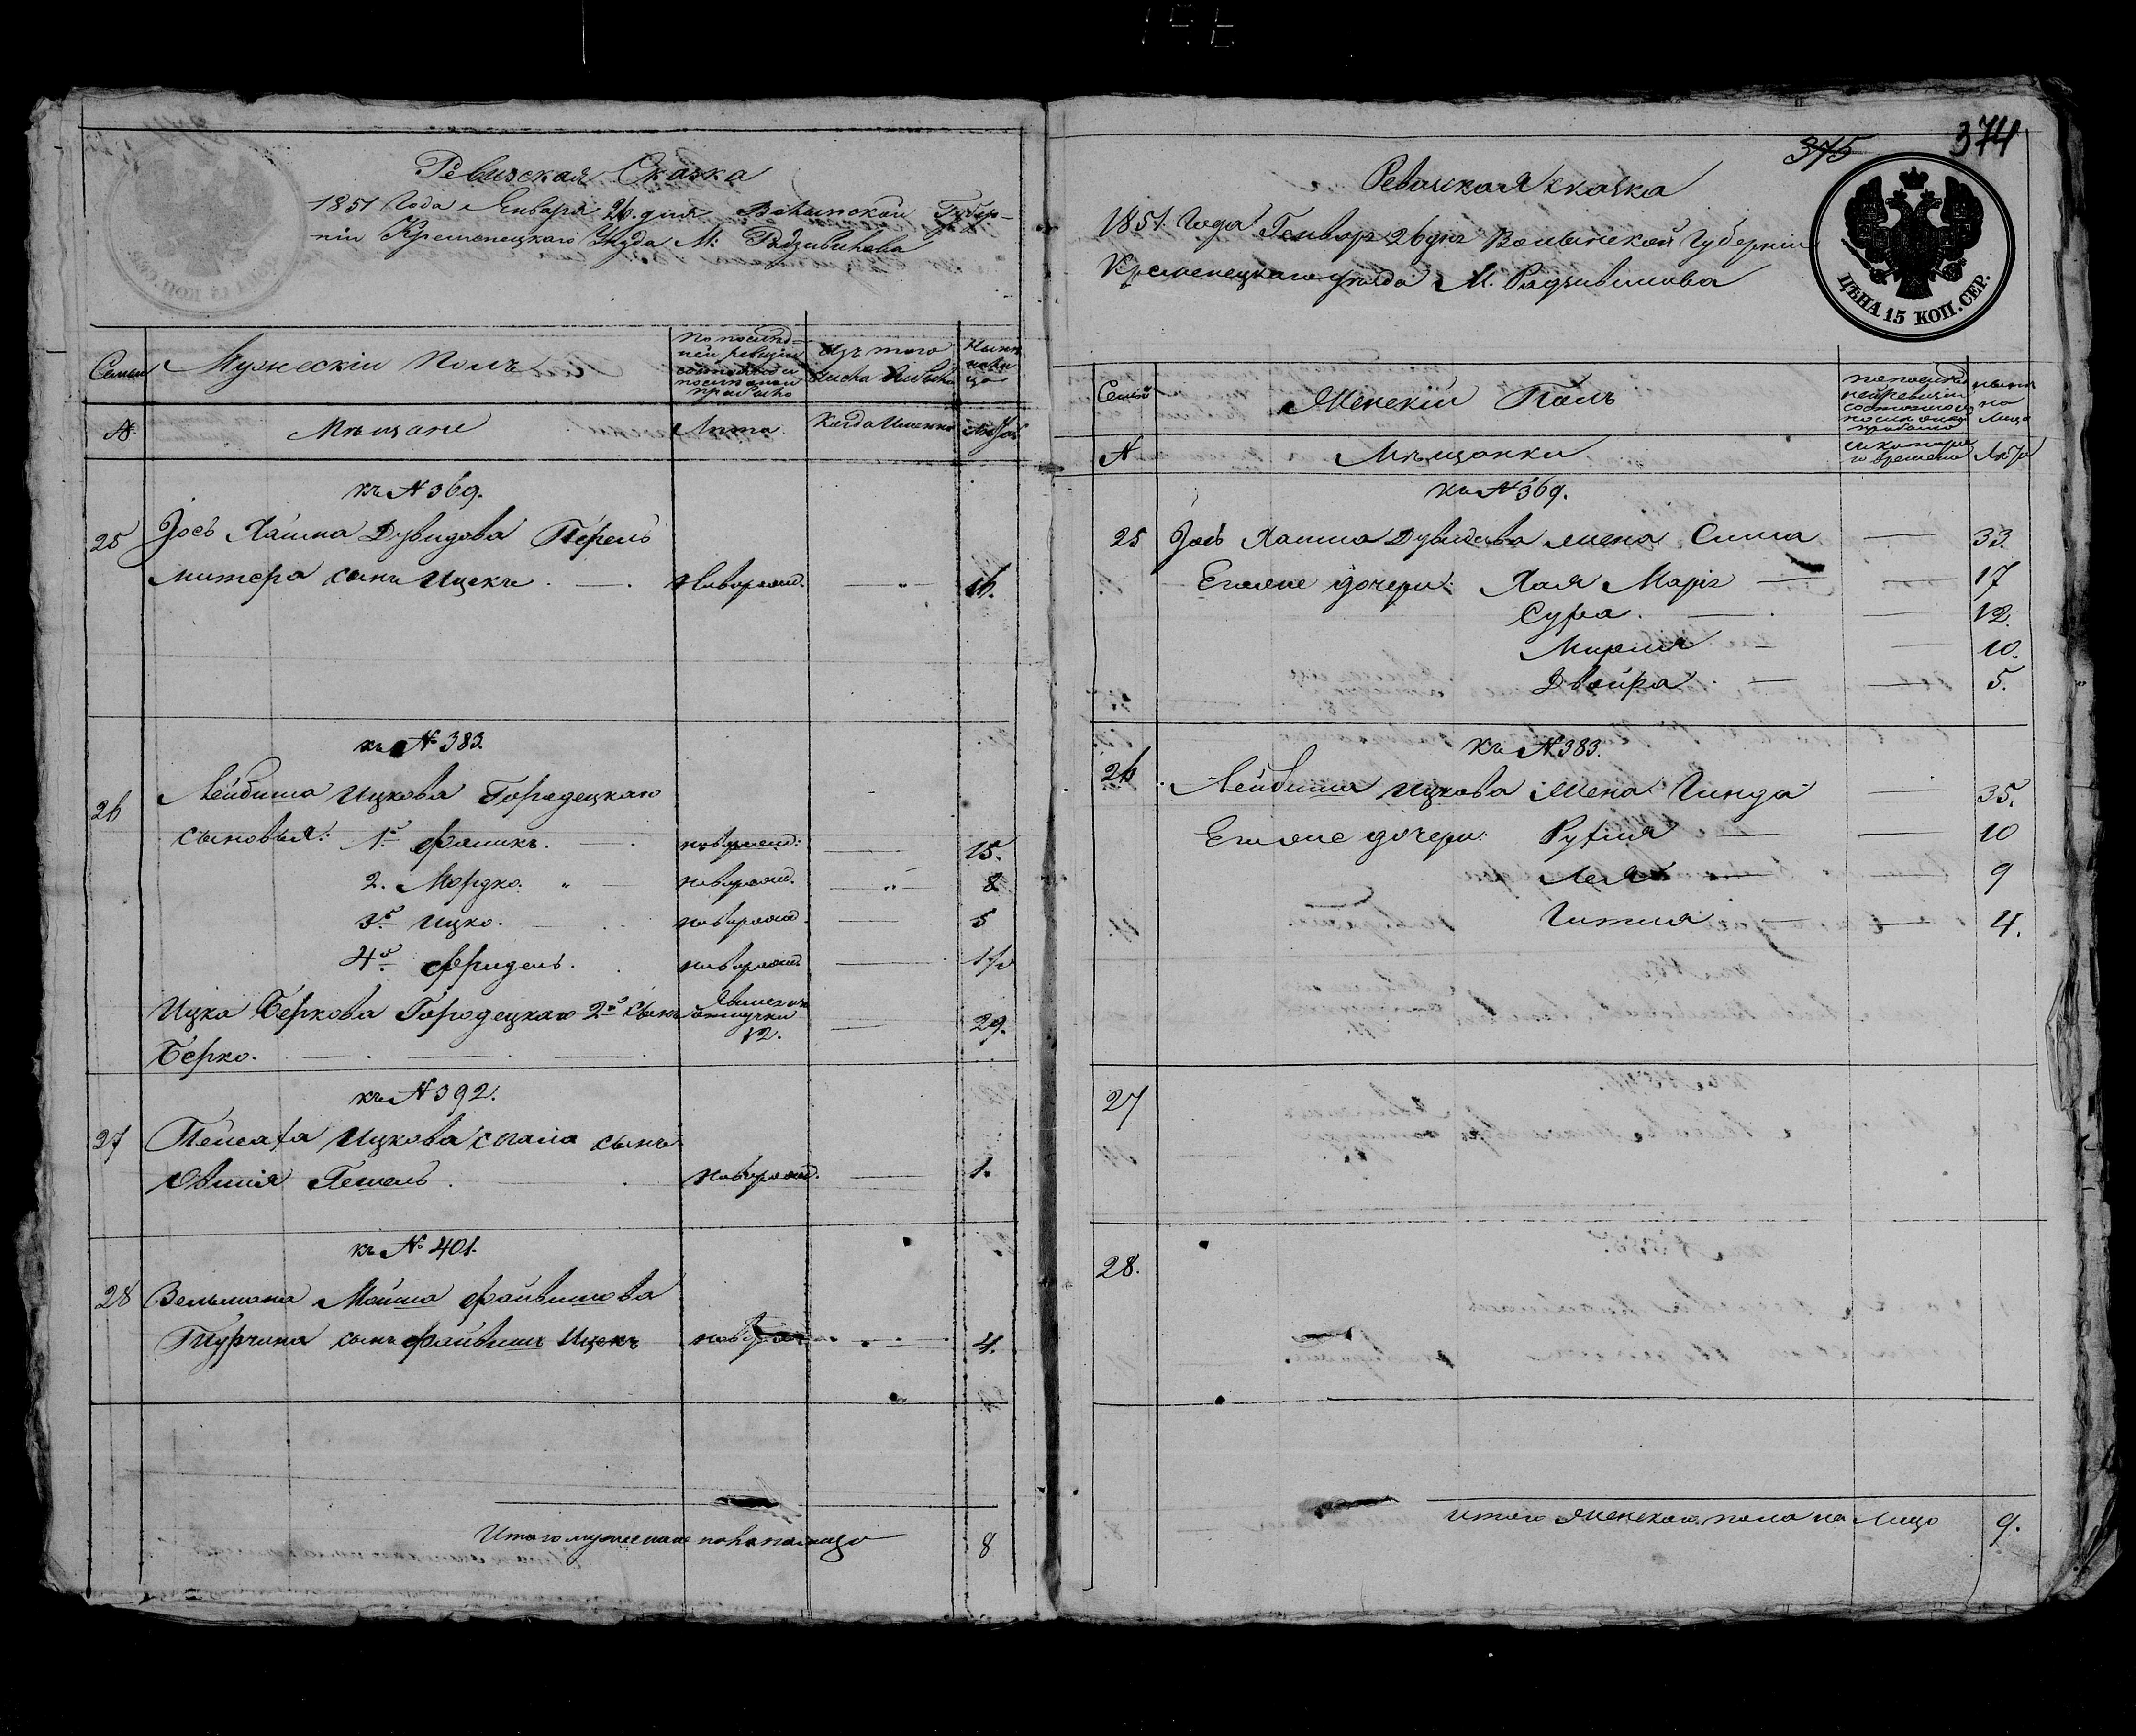 Ревизская Сказка
1851 Года Января 26 дня Волынской Губер-
ніи Кременецкаго Уѣзда М: Радзивилова
Семьи
Мужескій Полъ
По послѣд-
ней ревизіи
состояло и
послѣ оной
прибыло
Изъ того
числа выбыло
Нынѣ
на ли
цо
№
Мѣщане
Лѣта
Когда Именно
Лѣта
къ № 369.
25 Іося Хаима Дувидова Перель
митера сынъ Ицекъ новорожд. 16.
къ № 383.
26 Лейбиша Ицкова Городецкаго
сыновья: 1й Фаликъ. новорожд: 15.
2. Мордко. новорожд. 8
3й Ицко. новорожд. 5
4й Фридель. новорожд
Ицка Беркова Городецкаго 2й сынъ 12. 29.
Берко.
къ № 392.
27 Пейсаха Ицкова сынъ
Гешель новорожд. 1.
къ № 401.
28 Зельмана Мойша Файвишова
Турчина сынъ Файвишъ Ицекъ 4.
Итого мужескаго пола на лицо 8
375 374
Ревизская сказка
1851 Года Генвар 26 дня Волынской Губерніи
Кременецкаго уѣзда М. Радзивилова
ЦѢНА 15 КОП. СЕР.
Семьи
Женскій Полъ
по послѣд
ней ревизіи
состояло и
послѣ оной
прибыло
нынѣ
на
Лицо
№
Мѣщанки
съ котора
го времени
Лѣта
къ № 369.
25 Іося Хаима Дувидова жена Сима 33
Его же дочери: Хая Маря 17
Сура. 12.
Мирля 10.
Двойра. 5.
къ № 383.
26 Лейбиша Ицкова жена Гинда 35.
Его же дочери: Рухля 10
Лея 9
Гитля 4.
27
28.
итого женскаго пола на лицо 9.